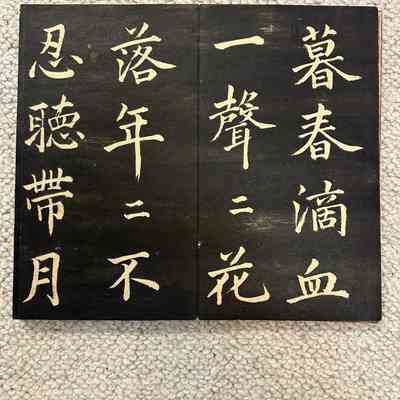 暮春滴血
一聲二花
落年二不
忍聽帶月